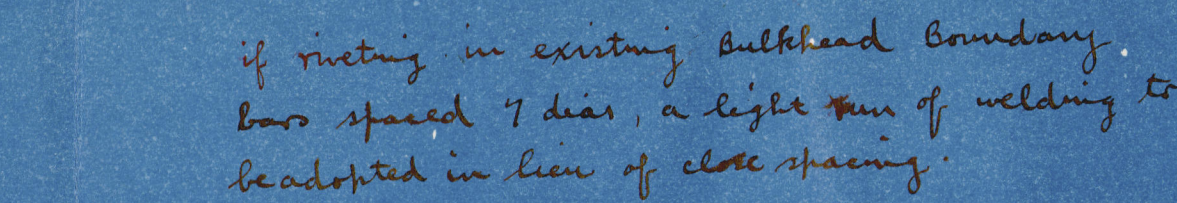 if riveting in existing Bulkhead Boundary
bars spaced 7 dias, a light run of welding to
be adopted in lieu of close spacing.